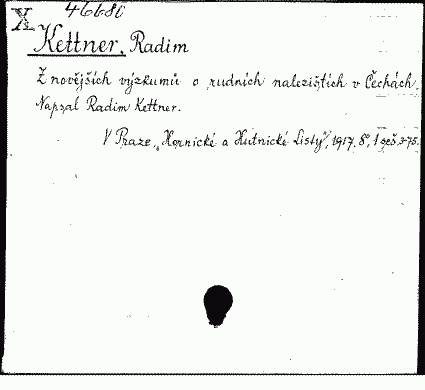 X 46686
Kettner, Radim
Z novějších výzkumů o rudních nalezištích v Čechách.
Napsal Radim Kettner.
V Praze, „Hornické a Hutnické Listy", 1917. 8°, 1 seš.